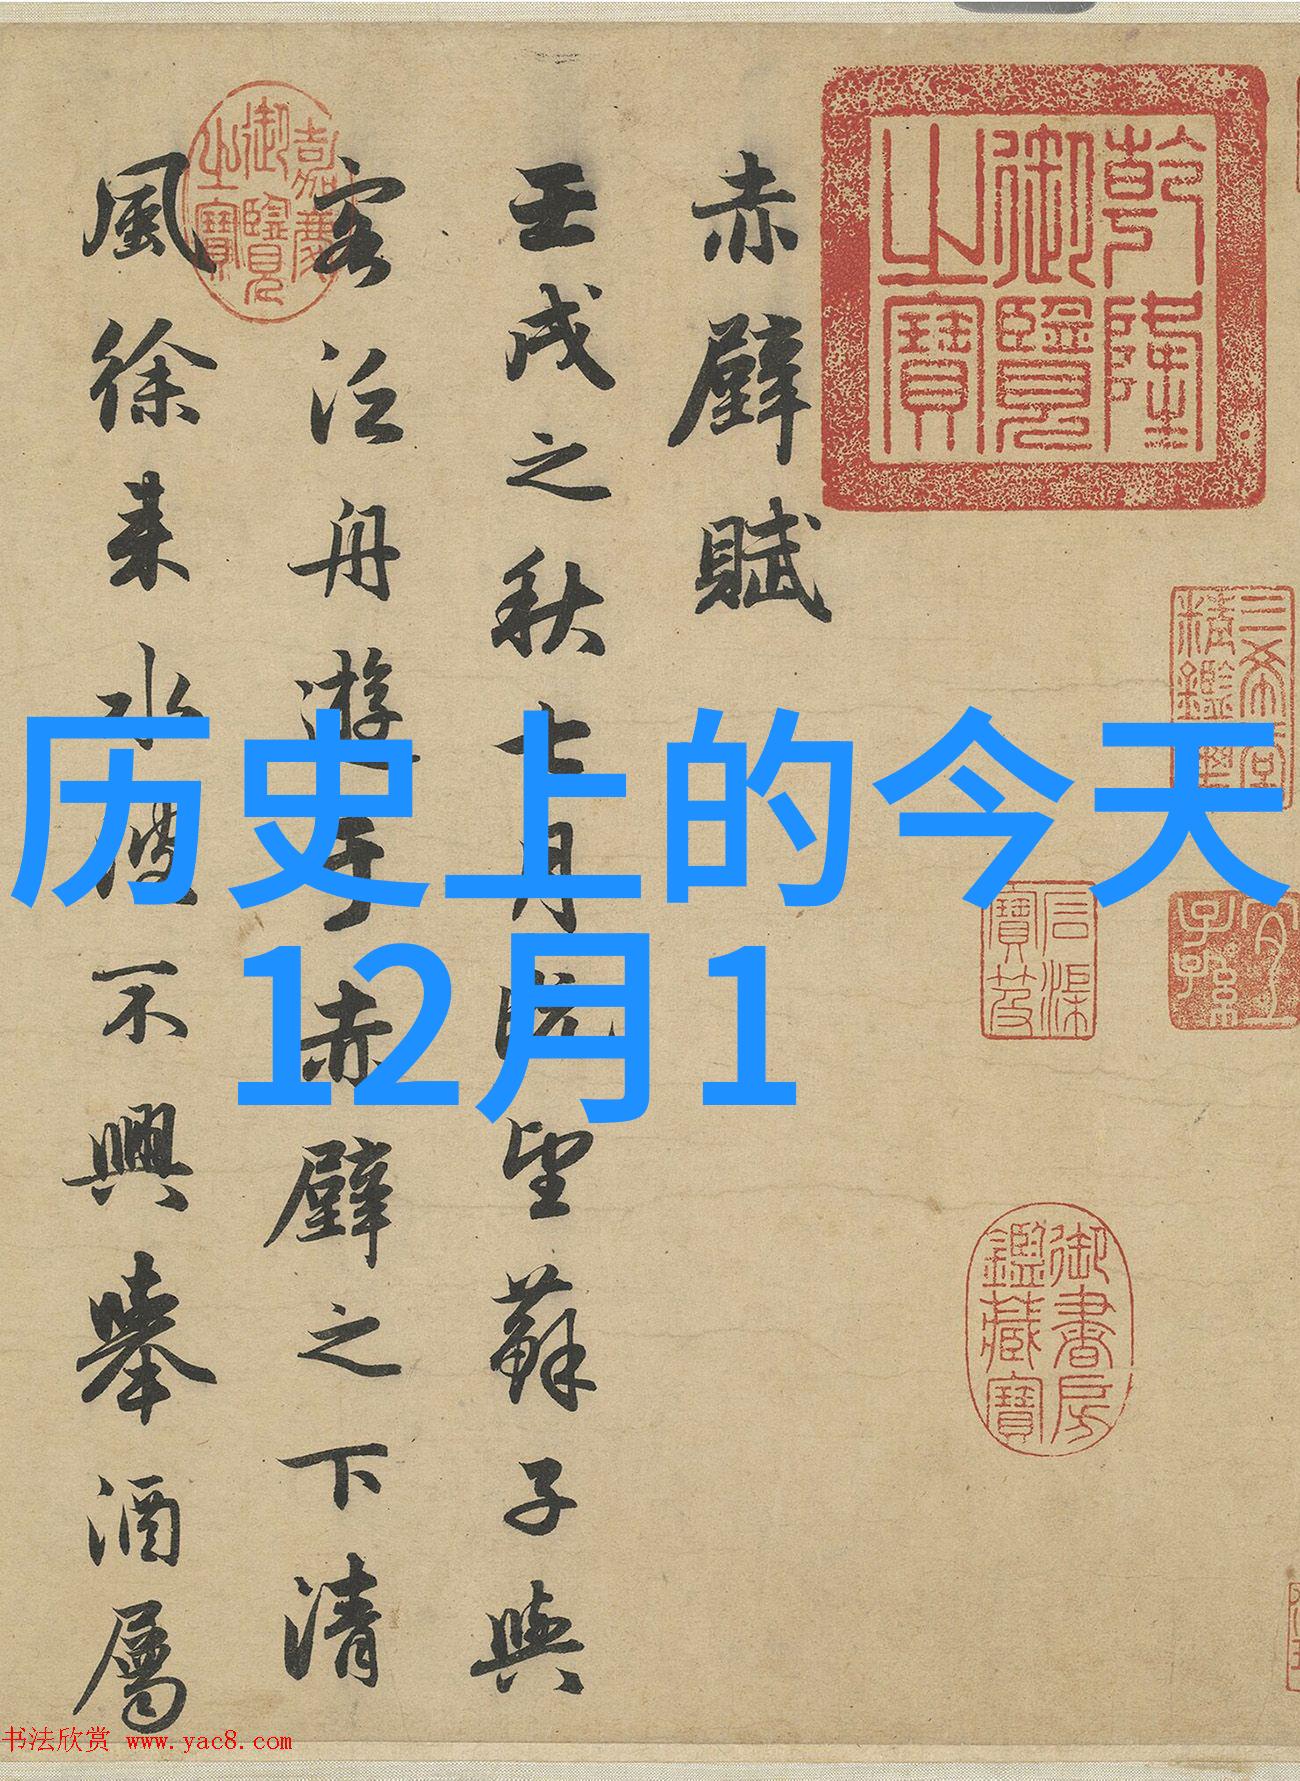 历史上的今天
12月1
乾隆
御覽
之寶
嘉慶
御覽
之寶
三希堂
精鑑璽
宜子孫
石渠
寶笈
御書房
鑑藏寶
赤壁賦
壬戌之秋七月既望蘇子與
客泛舟遊于赤壁之下清
風徐来水波不興舉酒屬
书法欣赏 www.yac8.com